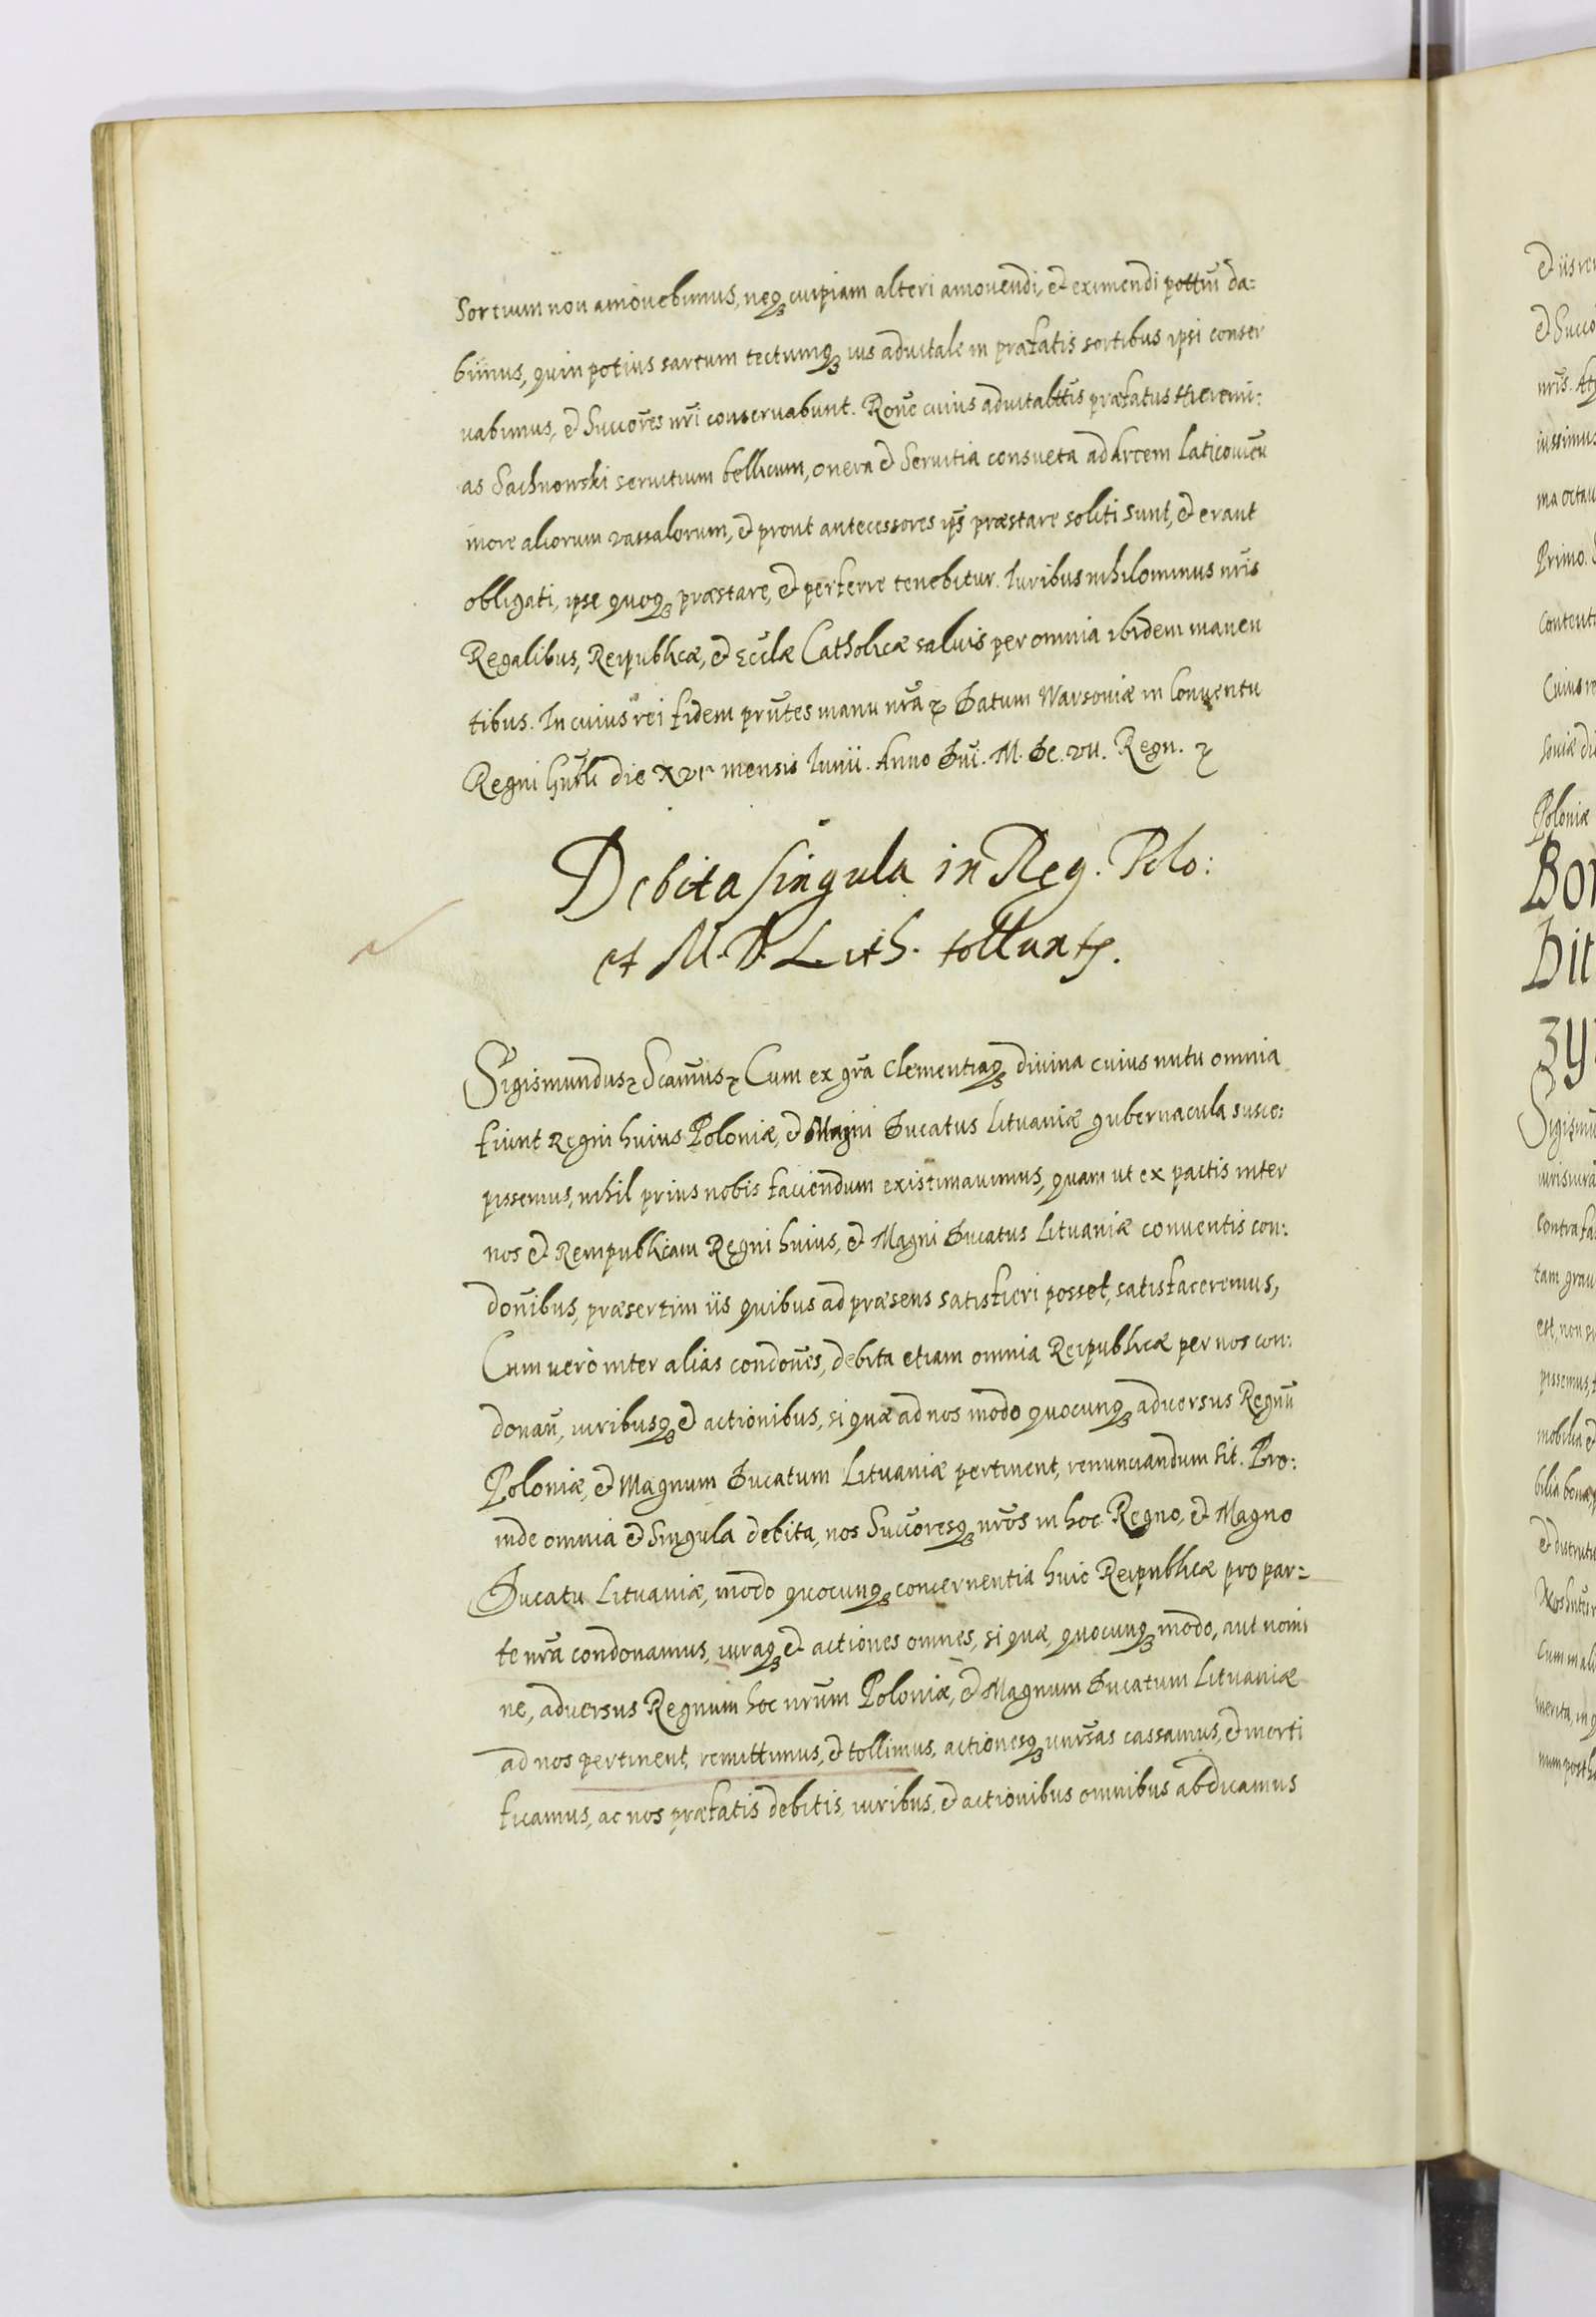 Sortium non amovebimus, neq₃ cuipiam alteri amovendi, et eximendi pottm̃ da=
bimus, quin potius sartum tectumq₃ ius advitale in præfatis sortibus ipsi conser
vabimus, et Succores nrĩ conservabunt. Rone cuius advitalttis præfatus Hieremi:
as Sachnowski servitium bellicum, onera et Servitia consueta ad Arcem Laticovien
more aliorum vassalorum, et prout antecessores ips̃ præstare soliti sunt, et erant
obligati, ipse quoq₃ præstare, et perferre tenebitur. Iuribus nihilominus nris̃
Regalibus, Reipublicæ, et Eccl̃æ Catholicæ salvis per omnia ibidem manen
tibus. In cuius rei fidem prñtes manu nrã ꝛc Datum Warsoviæ in Conventu
Regni Gnrl̃i die XVI mensis Iunii. Anno Dnĩ. M. DC. VII. Regn. ꝛc
Debita singula in Reg. Polo:
et M. D. Lith. tolluntr.
Sigismundus ꝛc Scam̃us ꝛc Cum ex grã Clementiaq₃ divina cuius nutu omnia
fiunt Regni huius Poloniæ, et Magni Ducatus Lituaniæ gubernacula susce:
pissemus, nihil prius nobis faciendum existimavimus, quam ut ex pactis inter
nos et Rempublicam Regni huius, et Magni Ducatus Lituaniæ conventis con:
donĩbus, præsertim iis quibus ad præsens satisfieri posset, satisfaceremus,
Cum verò inter alias condoñes, debita etiam omnia Reipublicæ per nos con:
donañ, iuribusq₃ et actionibus, si quæ ad nos modo quocunq₃ adversus Regnũ
Poloniæ, et Magnum Ducatum Lituaniæ pertinent, renunciandum sit. Pro:
inde omnia et Singula debita, nos Succoresq₃ nrõs in hoc Regno, et Magno
Ducatu Lituaniæ, modo quocunq₃ concernentia huic Reipublicæ pro par=
te nrã condonamus, iuraq₃ et actiones omnes, si quæ, quocunq₃ modo, aut nomi
ne, adversus Regnum hoc nrũm Poloniæ, et Magnum Ducatum Lituaniæ
ad nos pertinent, remittimus, et tollimus, actionesq₃ unirs̃as cassamus, et morti
ficamus, ac nos præfatis debitis, iuribus, et actionibus omnibus abdicamus